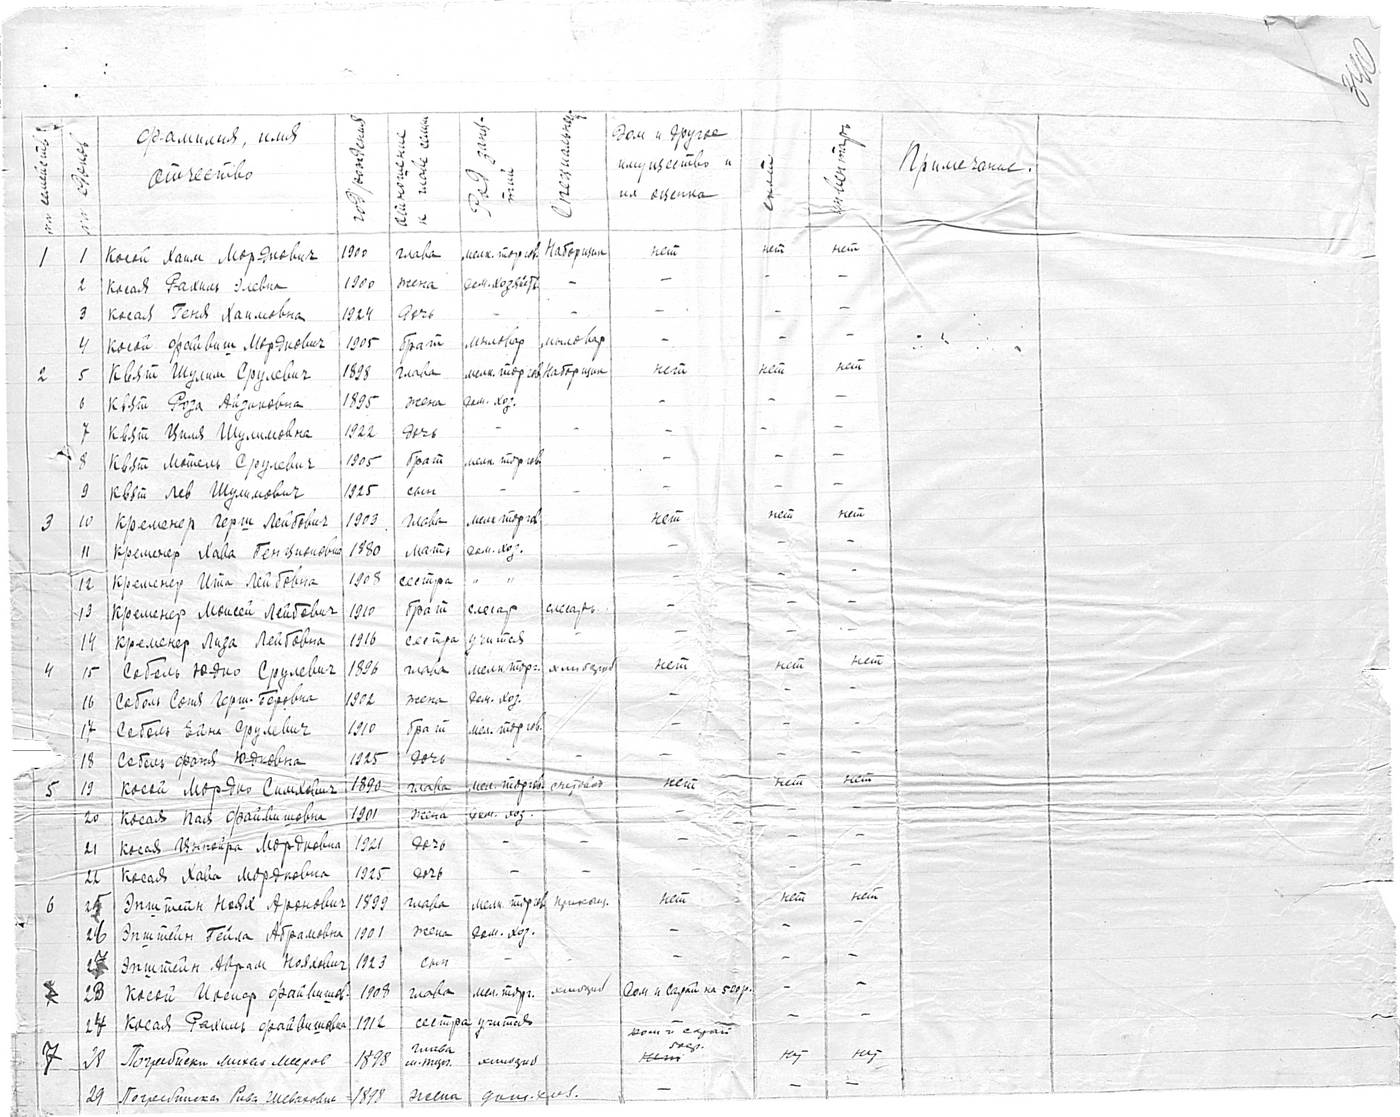 340
№ семейств
№ едоков
фамилия, имя отчество
год рождения
отношение к главе семьи
Род занятий
Специальность
Дом и другое имущество и их оценка
скот
инвентарь
Примечание.
1 1 Косой Хаим Мордкович 1900 глава мелк. торгов. Наборщик нет нет нет
2 Косая Рахиль Элевна 1900 жена дом. хозяйств - - - -
3 Косая Геня Хаимовна 1924 дочь - - - - -
4 Косой Файвиш Мордкович 1905 брат мыловар мыловар - - -
2 5 Квят Шулим Срулевич 1898 глава мелк. торгов Наборщик нет нет нет
6 Квят Роза Айзиковна 1895 жена дом. хоз. - - -
7 Квят Циля Шулимовна 1922 дочь - - - - -
8 Квят Мотель Срулевич 1905 брат мелк. торгов - - -
9 Квят Лев Шулимович 1925 сын - - - - -
3 10 Кременер Герш Лейбович 1903 глава мелк. торгов. нет нет нет
11 Кременер Хава Бенционовна 1880 мать дом. хоз. - - -
12 Кременер Ита Лейбовна 1908 сестра " " - - -
13 Кременер Моисей Лейбович 1910 брат слесар слесарь - - -
14 Кременер Лиза Лейбовна 1916 сестра учится - - - -
4 15 Соболь Юдко Срулевич 1896 глава мелк. торг. нет нет нет
16 Соболь Соня Герш-Беровна 1902 жена дом. хоз. - - -
17 Соболь Срулевич 1910 брат мел. торгов. - - -
18 Соболь Фаня Юдковна 1925 дочь - - - - -
5 19 Косой Мордко Симхович 1890 глава мел. торгов. нет нет нет
20 Косая Файвишовна 1901 жена дом. хоз. - - -
21 Косая Ципойра Мордковна 1921 дочь - - - - -
22 Косая Хава Мордковна 1925 дочь - - - - -
6 25 Эпштейн Ноях Аронович 1899 глава мелк. торгов нет нет нет
26 Эпштейн Гейла Абрамовна 1901 жена дом. хоз. - - -
27 Эпштейн Аврам Нояхович 1923 сын - - - - -
23 Косой Иосиф Файвишов. 1908 глава мел. торг. Дом и сарай на 500 р. - -
24 Косая Рахиль Файвишовна 1912 сестра учится - -
дом и сарай
500р.
7 28 Погребиски Михел Мееров 1898 глава м. торг. нет нет нет
29 Погребиская Рива 1898 жена дом. хоз. - - -